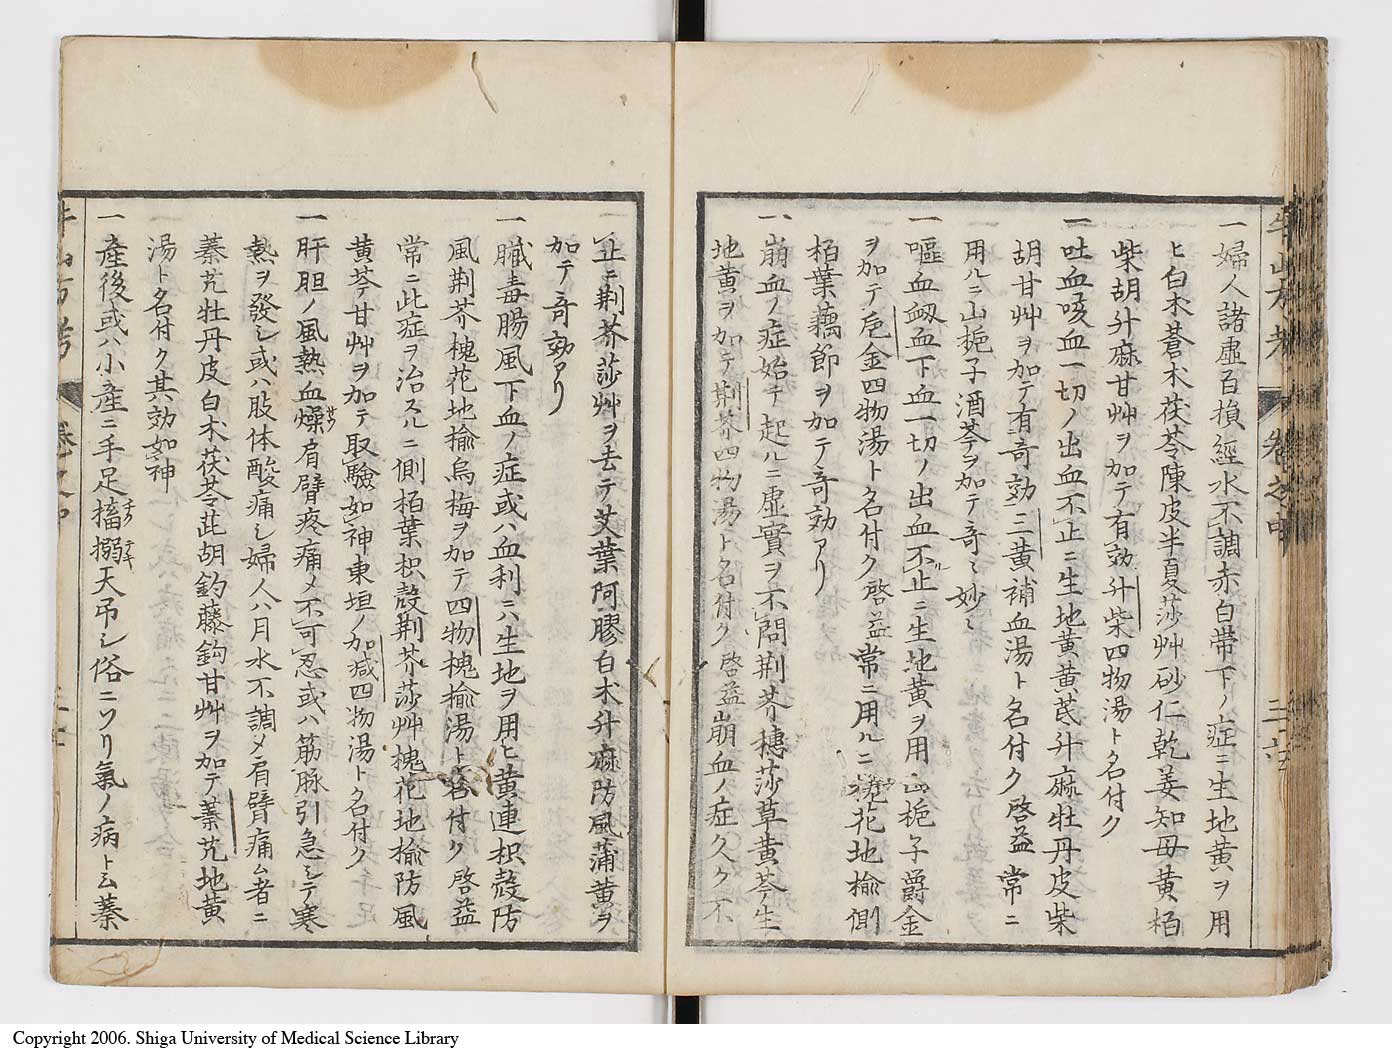 一婦人諸虛百損經水不調赤白帶下ノ症ニ生地黄ヲ用
ヒ白朮蒼朮茯苓陳皮半夏莎艸砂仁乾姜知母黄栢
柴胡升麻甘艸ヲ加テ有効升柴四物湯ト名付ク
一吐血咳血一切ノ出血不止ニ生地黄黄芪升麻牡丹皮柴
胡甘艸ヲ加テ有奇効三黄補血湯ト名付ク啓益常ニ
用ルニ山梔子酒芩ヲ加テ奇々妙々
一嘔血衂血下血一切ノ出血不止ニ生地黄ヲ用山梔子爵金
ヲ加テ梔金四物湯ト名付ク啓益常ニ用ルニ槐花地楡側
栢葉藕節ヲ加テ奇効アリ
一崩血ノ症始テ起ルニ虛實ヲ不問荆芥穗莎草黄芩生
地黄ヲ加テ荆芥四物湯ト名付ク啓益崩血ノ症久ク不
止ニ荆芥莎艸ヲ去テ艾葉阿膠白朮升麻防風蒲黄ヲ
加テ奇効アリ
一臓毒腸風下血ノ症或ハ血利ニハ生地ヲ用ヒ黄連枳殻防
風荆芥槐花地楡烏梅ヲ加テ四物槐楡湯ト名付ク啓益
常ニ此症ヲ治スルニ側栢葉枳殻荆芥莎艸槐花地楡防風
黄芩甘艸ヲ加テ取驗如神東垣ノ加減四物湯ト名付ク
一肝胆ノ風熱血燥肩臂疼痛メ不可忍或ハ筋脉引急シテ寒
熱ヲ發シ或ハ肢体酸痛シ婦人ハ月水不調メ肩臂痛ム者ニ
秦艽牡丹皮白朮茯苓茈胡釣藤鈎甘艸ヲ加テ秦艽地黄
湯ト名付ク其効如神
一產後或ハ小產ニ手足搐搦天吊シ俗ニソリ氣ノ病ト云蓁
牛山方考
卷之中